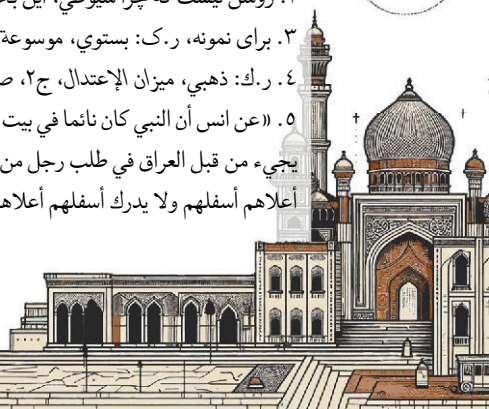 ۳. برای نمونه، ر.ک: بستوي، موسوعة
٤. ر.ك: ذهبي، ميزان الإعتدال، ج۲، ص
٥. «عن انس أن النبي كان نائما في بيت
يجيء من قبل العراق في طلب رجل من
أعلاهم أسفلهم ولا يدرك أسفلهم أعلاهم